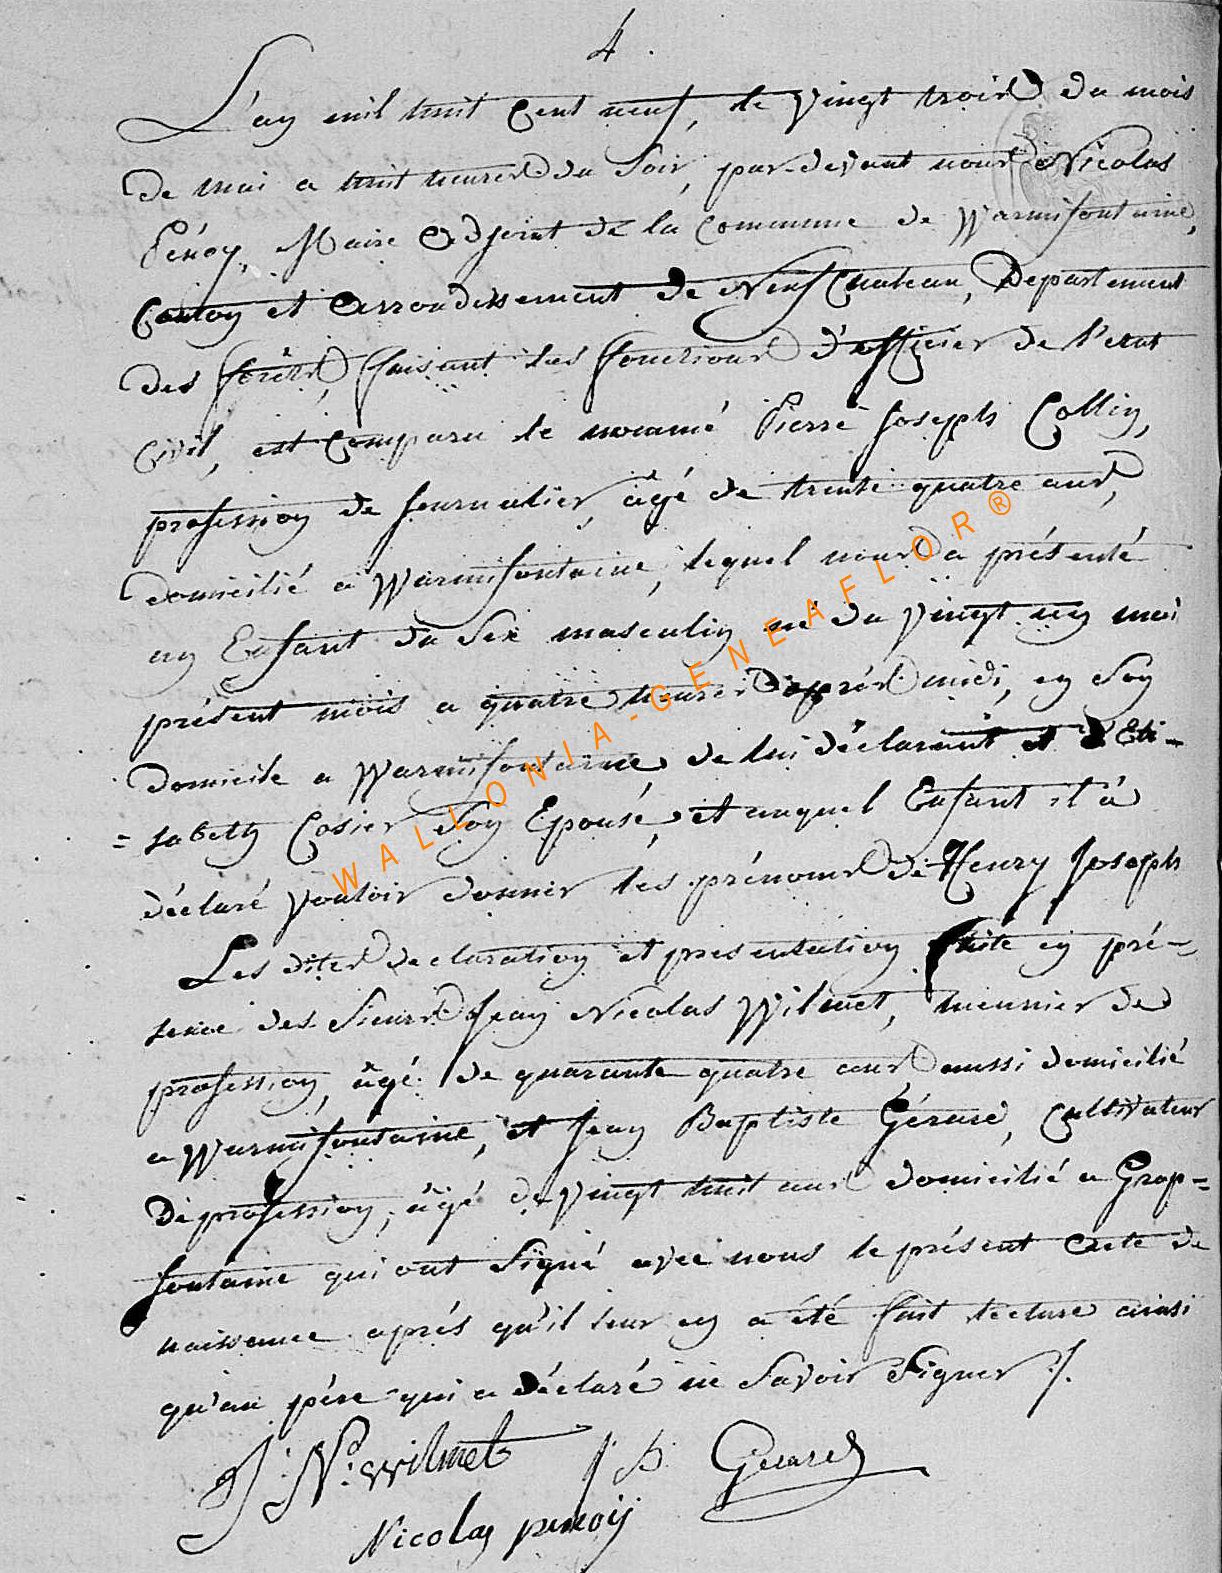 4.
L'an mil huit cent neuf, le vingt trois du mois
de mai a huit heures du soir, par-devant nous Nicolas
Pénoy, Maire adjoint de la commune de Warmifontaine,
Canton et arrondissement de Neufchateau, Departement
des forêts, faisant les fonctions d'officier de l'etat
civil, est comparu le nommé Pierre Joseph Collin,
profession de journalier, âgé de trente quatre ans,
domicilié a Warmifontaine, lequel nous a présenté
un Enfant du sexe masculin né du vingt un mai
présent mois a quatre heures d'après midi, en son
domicile a Warmifontaine de lui déclarant et d'Eli-
=sabeth Cosier son Epouse, et auquel Enfant il à
déclaré vouloir donner les prénoms de Henry Joseph
Les dites declaration et presentation faite en pré-
sence des sieurs Jean Nicolas Wilmet, meunier de
profession, âgé de quarante quatre ans aussi domicilié
a Warmifontaine, et Jean Baptiste Gérard, cultivateur
De profession, âgé de vingt huit ans domicilié a Grap=
fontaine qui ont signé avec nous le présent acte de
naissance après qu'il leur en a été fait lecture ainsi
qu'au père qui a déclaré ne savoir signer ./.
J: N: Wilmet J. B. Gerard
Nicolas penoij
WALLONIA-GENEAFLOR®